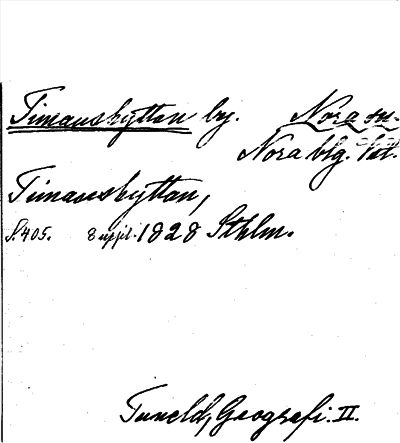 Timanshyttan by. Nora sn.
Nora blg. htt.
Timanshyttan,
S. 405. 8 uppl. 1828 Sthlm.
Tuneld, Geografi. II.